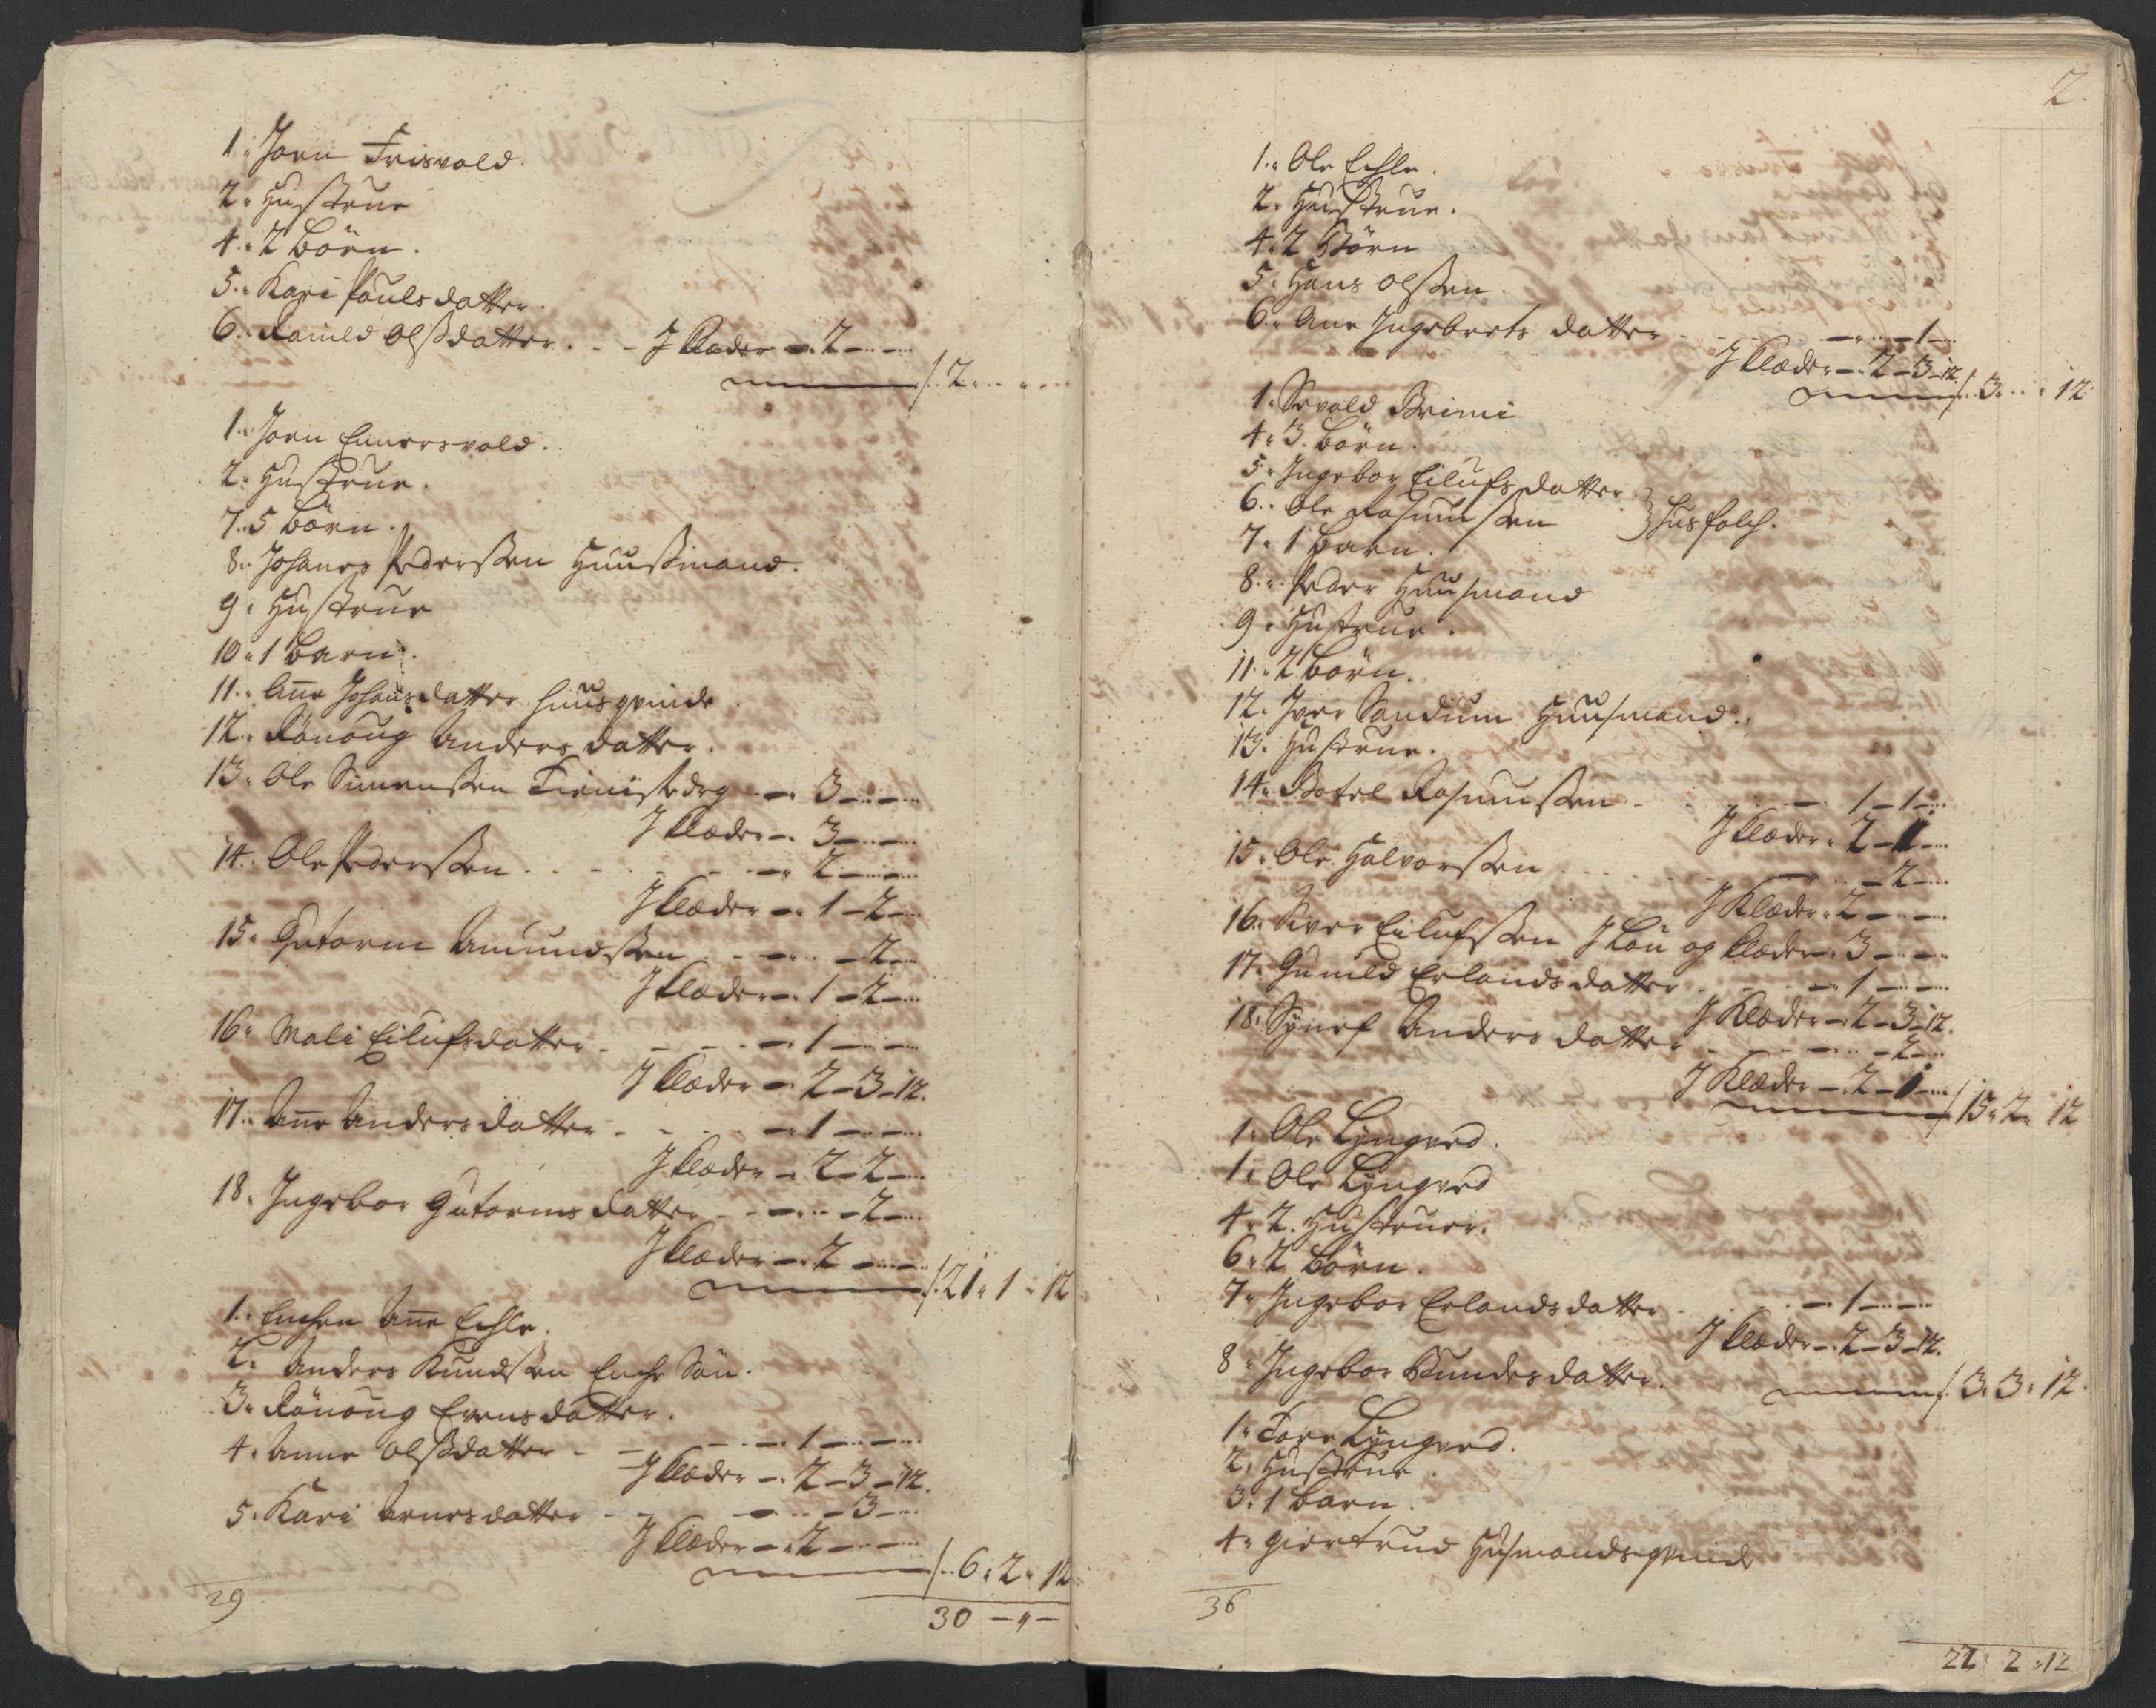 1. Joen Frisvold.
2. Hustrue
4. 2 Börn.
5. Kari Poulsdatter.
6. Ranild Olsdatter. - - J Klæder - 2 - -
/: 2 - -
1. Joen Ennersvold.
2. Hustrue.
7. 5 Börn.
8. Johanes Pedersen Huusmand.
9. Hustrue
10. 1 Barn.
11. Ane Johansdatter huusqvinde
12. Rönoug Anders datter.
13. Ole Simensen - 3 - -
J Klæder - 3 - -
14. Ole Pedersen. - - - 2 - -
J Klæder - 1 - 2 -
15. Gutorm Amundsen - - - 2 -
J Klæder - 1 - 2 -
16. Mali Eilufsdatter - - - 1 - -
J Klæder - 2 - 3 - 12.
17. Ane Andersdatter - - - 1 - -
J Klæder - 2 - 2 -
18. Ingebor Gutormsdatter - - - 2 -
J Klæder - 2 - -
/: 21 " 1 " 12
1. Enchen Ane Echle.
2. Anders Knudsen Enche Sön.
3. Rönoug Evensdatter.
4. Anne Olsdatter - - - 1 - -
J Klæder - 2 - 3 - 12.
5. Kari Arnesdatter - - - 3 -
J Klæder - 2 - -
/: 6 " 2 " 12
29
30 - " -
2.
1. Ole Echle.
2. Hustrue.
4. 2 Börn
5. Hans Olsen.
6. Ane Ingebrets datter - - - 1 -
J Klæder - 2 - 3 - 12.
/: 3 - " 12.
1. Sevald Brimi
4. 3. Börn.
5. Ingebor Eilufsdatter
6. Ole Rasmussen } Husfolch.
7. 1 Barn.
8. Peder Huusmand
9. Hustrue.
11. 2 Börn.
12. Iver Sandum Huusmand.
13. Hustrue.
14. Botel Rasmussen - - 1 - 1 -
J Klæder - 2 - 1 -
15. Ole Halvorsen - - - 2 -
J Klæder - 2 - -
16. Siver Eilufsen J Lön og Klæder - 3 - -
17. Gunild Erlandsdatter - - 1 - -
J Klæder - 2 - 3 - 12.
18. Synef Anders datter - - - 2 -
J Klæder - 2 - 1 -
/: 15 " 2 " 12
1. Ole Lyngved.
1. Ole Lyngved
4. 2. Hustruer.
6. 2 Börn.
7. Ingebor Erlandsdatter - - 1 - -
J Klæder - 2 - 3 - 12.
8. Ingebor datter.
/: 3. 3. 12.
1. Tore Lyngved.
2. Hustrue.
3. 1 Barn.
4. Giertrud Husmandsqvinde
36
22 " 2 " 12